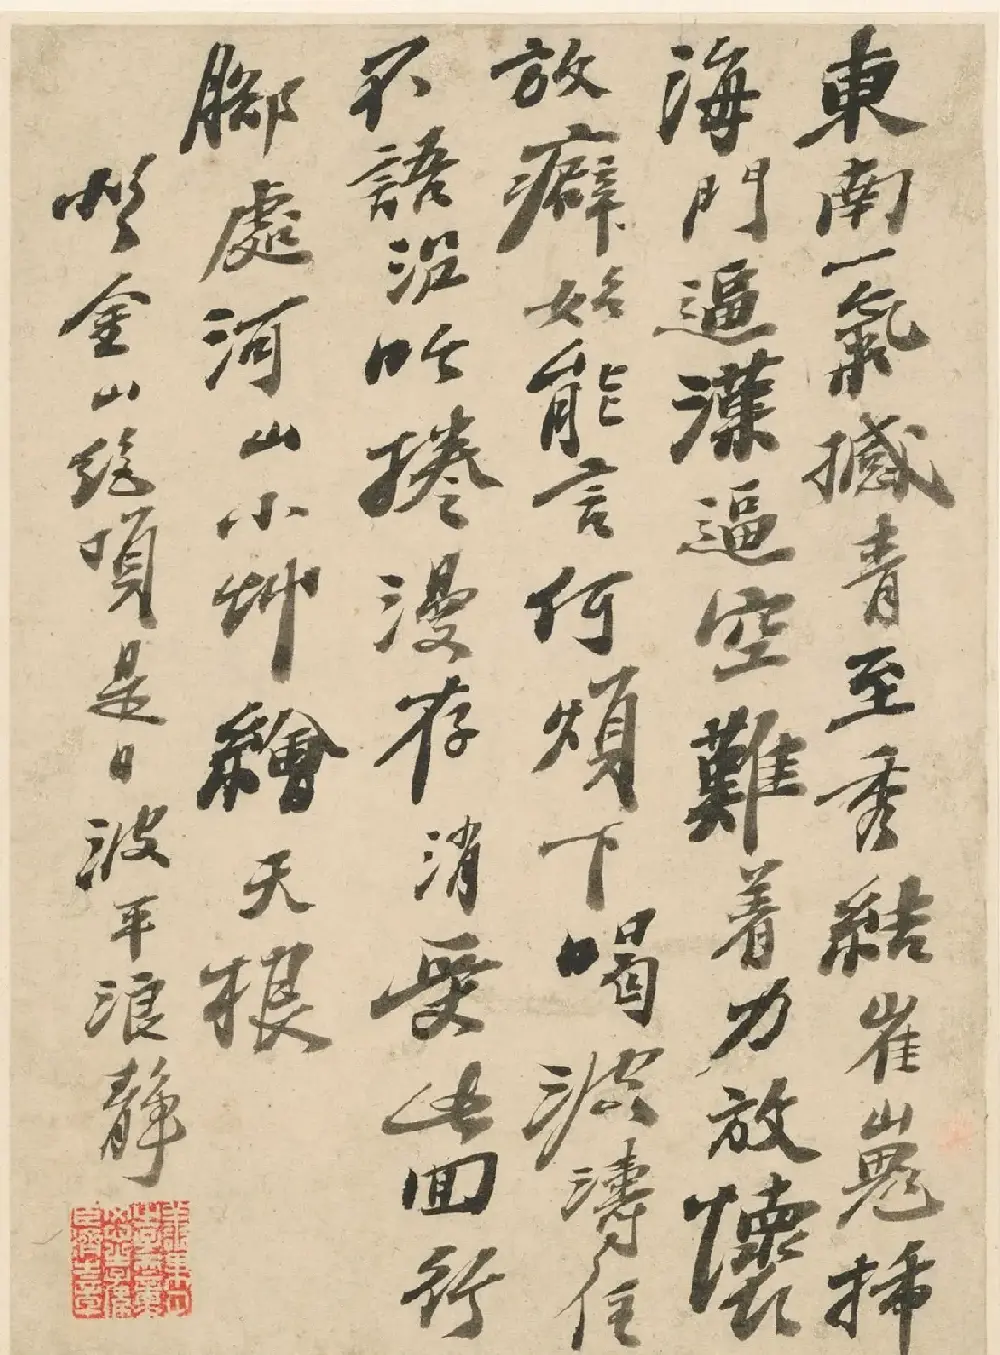 東南一氣撼青至秀結崔嵬插
海門逼漢逼空難着力放懷
放癖始能言何煩下喝波濤住
不語沿吟捲漫存消受此回行
腳處河山小艸繪天根
登金山絕頂是日波平浪靜